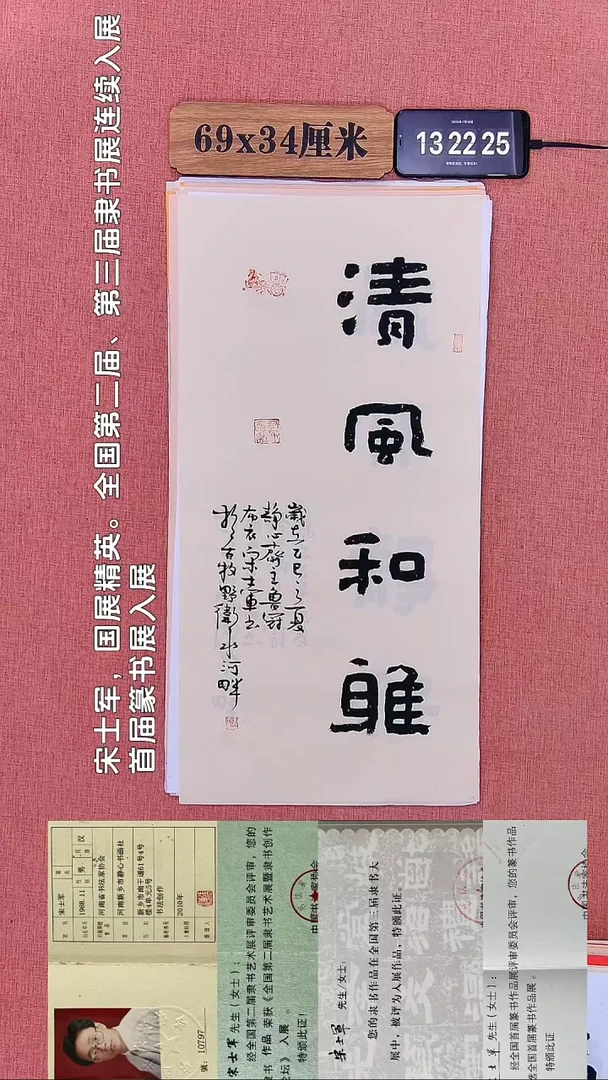 宋士军，国展精英。全国第二届、第三届隶书展连续入展
首届篆书展入展
69x34厘米
13 22 25
清風和雅
歲在乙巳之夏
静心齋主曹寫
布衣宋士軍書
於古牧野衛水河畔
宋士军
1968.11
男
汉
河南省书法家协会
河南新乡市静心书画社
新乡市南干道61号4号
楼4单元5号
书法创作
2010年
号：10797
宋士军 先生（女士）：
经全国第二届隶书艺术展评审委员会评审，您的
隶书 作品 荣获《全国第二届隶书艺术展暨隶书创作
论坛》入展 。
特颁此证！
宋士军 先生（女士）：
您的隶书作品在全国第三届隶书大
展中，被评为入展作品，特颁此证。
士军 先生（女士）：
经全国首届篆书作品展评审委员会评审，您的篆书作品
全国首届篆书作品展 。
特颁此证